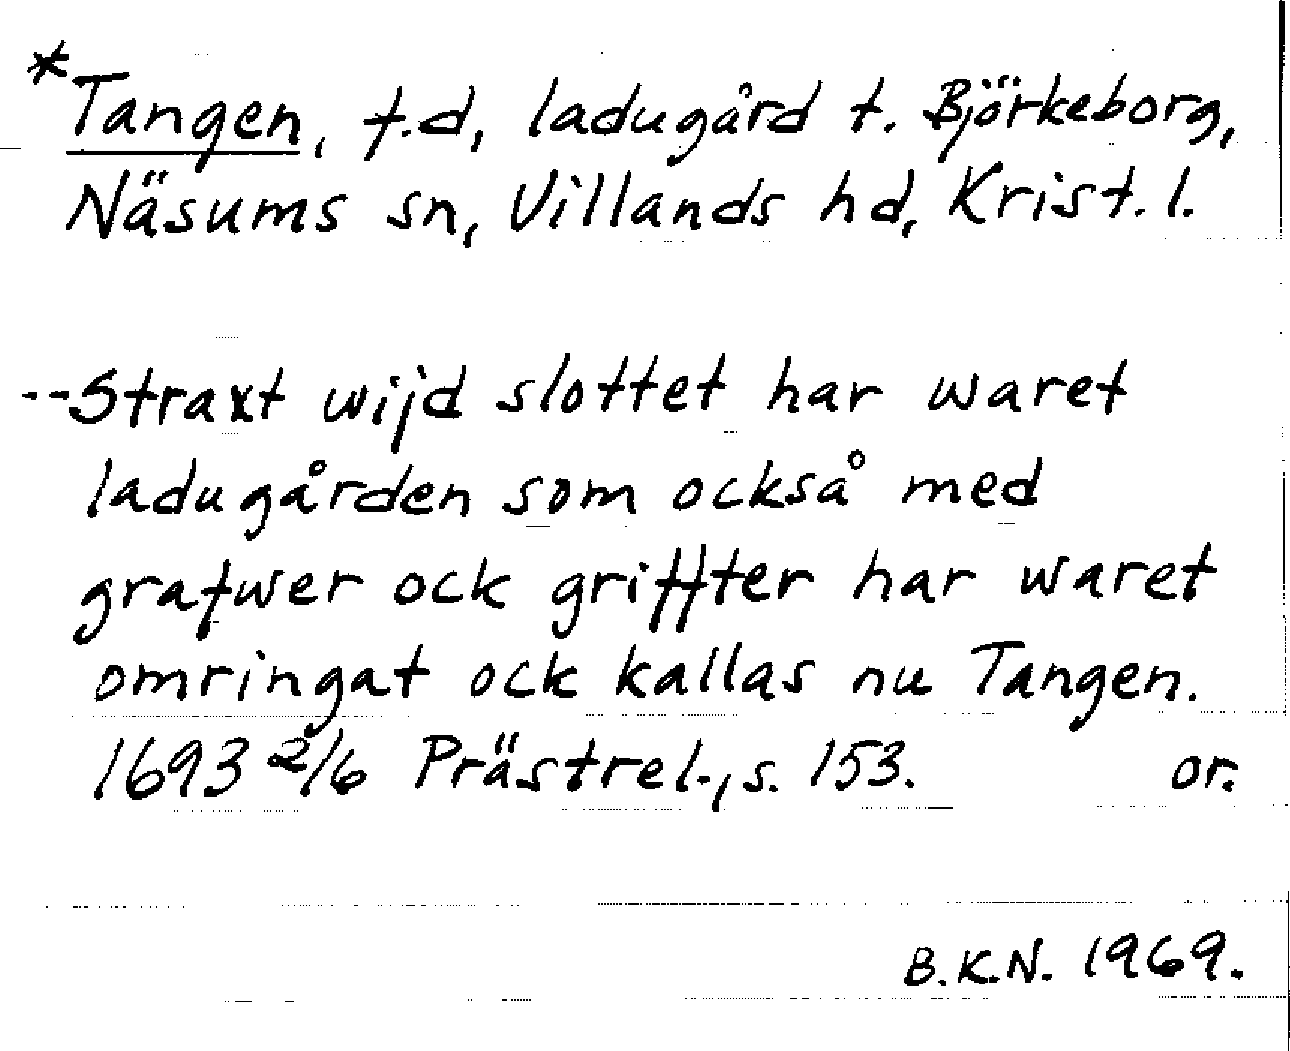 *Tangen, f.d, ladugård t. Björkeborg,
Näsums sn, Villands hd, Krist. l.
--Straxt wijd slottet har waret
ladugården som också med
grafwer ock griffter har waret
omringat ock kallas nu Tangen.
1693 2/6 Prästrel., s. 153. or.
B.K.N. 1969.